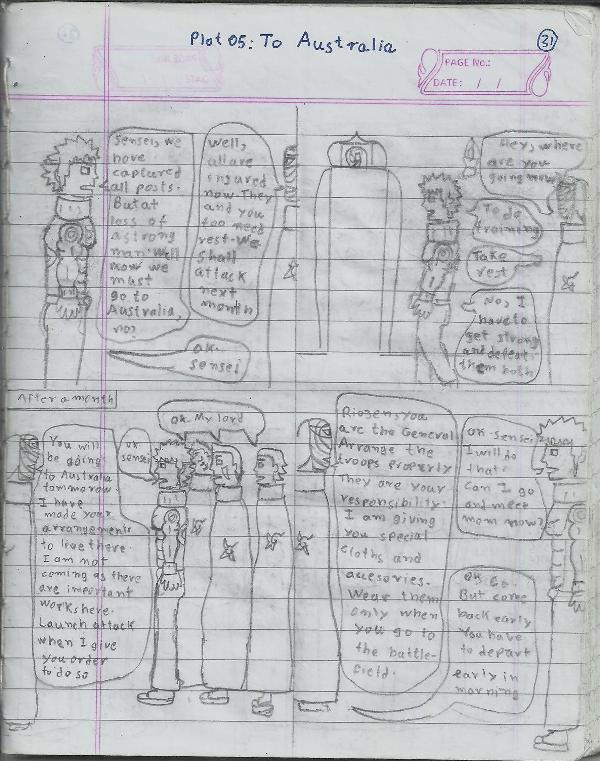 Plot 05: To Australia
31
PAGE NO.:
DATE: / /
Sensei, we
have
captured
all posts.
But at
loss of
a strong
man. Well
now we
must
go to
Australia,
no?
Well,
all are
injured
now. They
and you
too need
rest. We
shall
attack
next
month
ok.
sensei
Hey, where
are you
going now
To do
training
Take
rest
No, I
have to
get strong
and defeat
them both
After a month
You will
be going
to Australia
tommorow.
I have
made your
arrangements
to live there.
I am not
coming as there
are important
works here.
Launch attack
when I give
you order
to do so
ok
sensei
ok My lord
Riozen, you
are the General
Arrange the
troops properly
They are your
responsibility.
I am giving
you special
cloths and
accesories.
Wear them
only when
you go to
the battle-
field.
ok sensei
I will do
that.
Can I go
and meet
mom now?
ok. Go.
But come
back early
You have
to depart
early in
morning